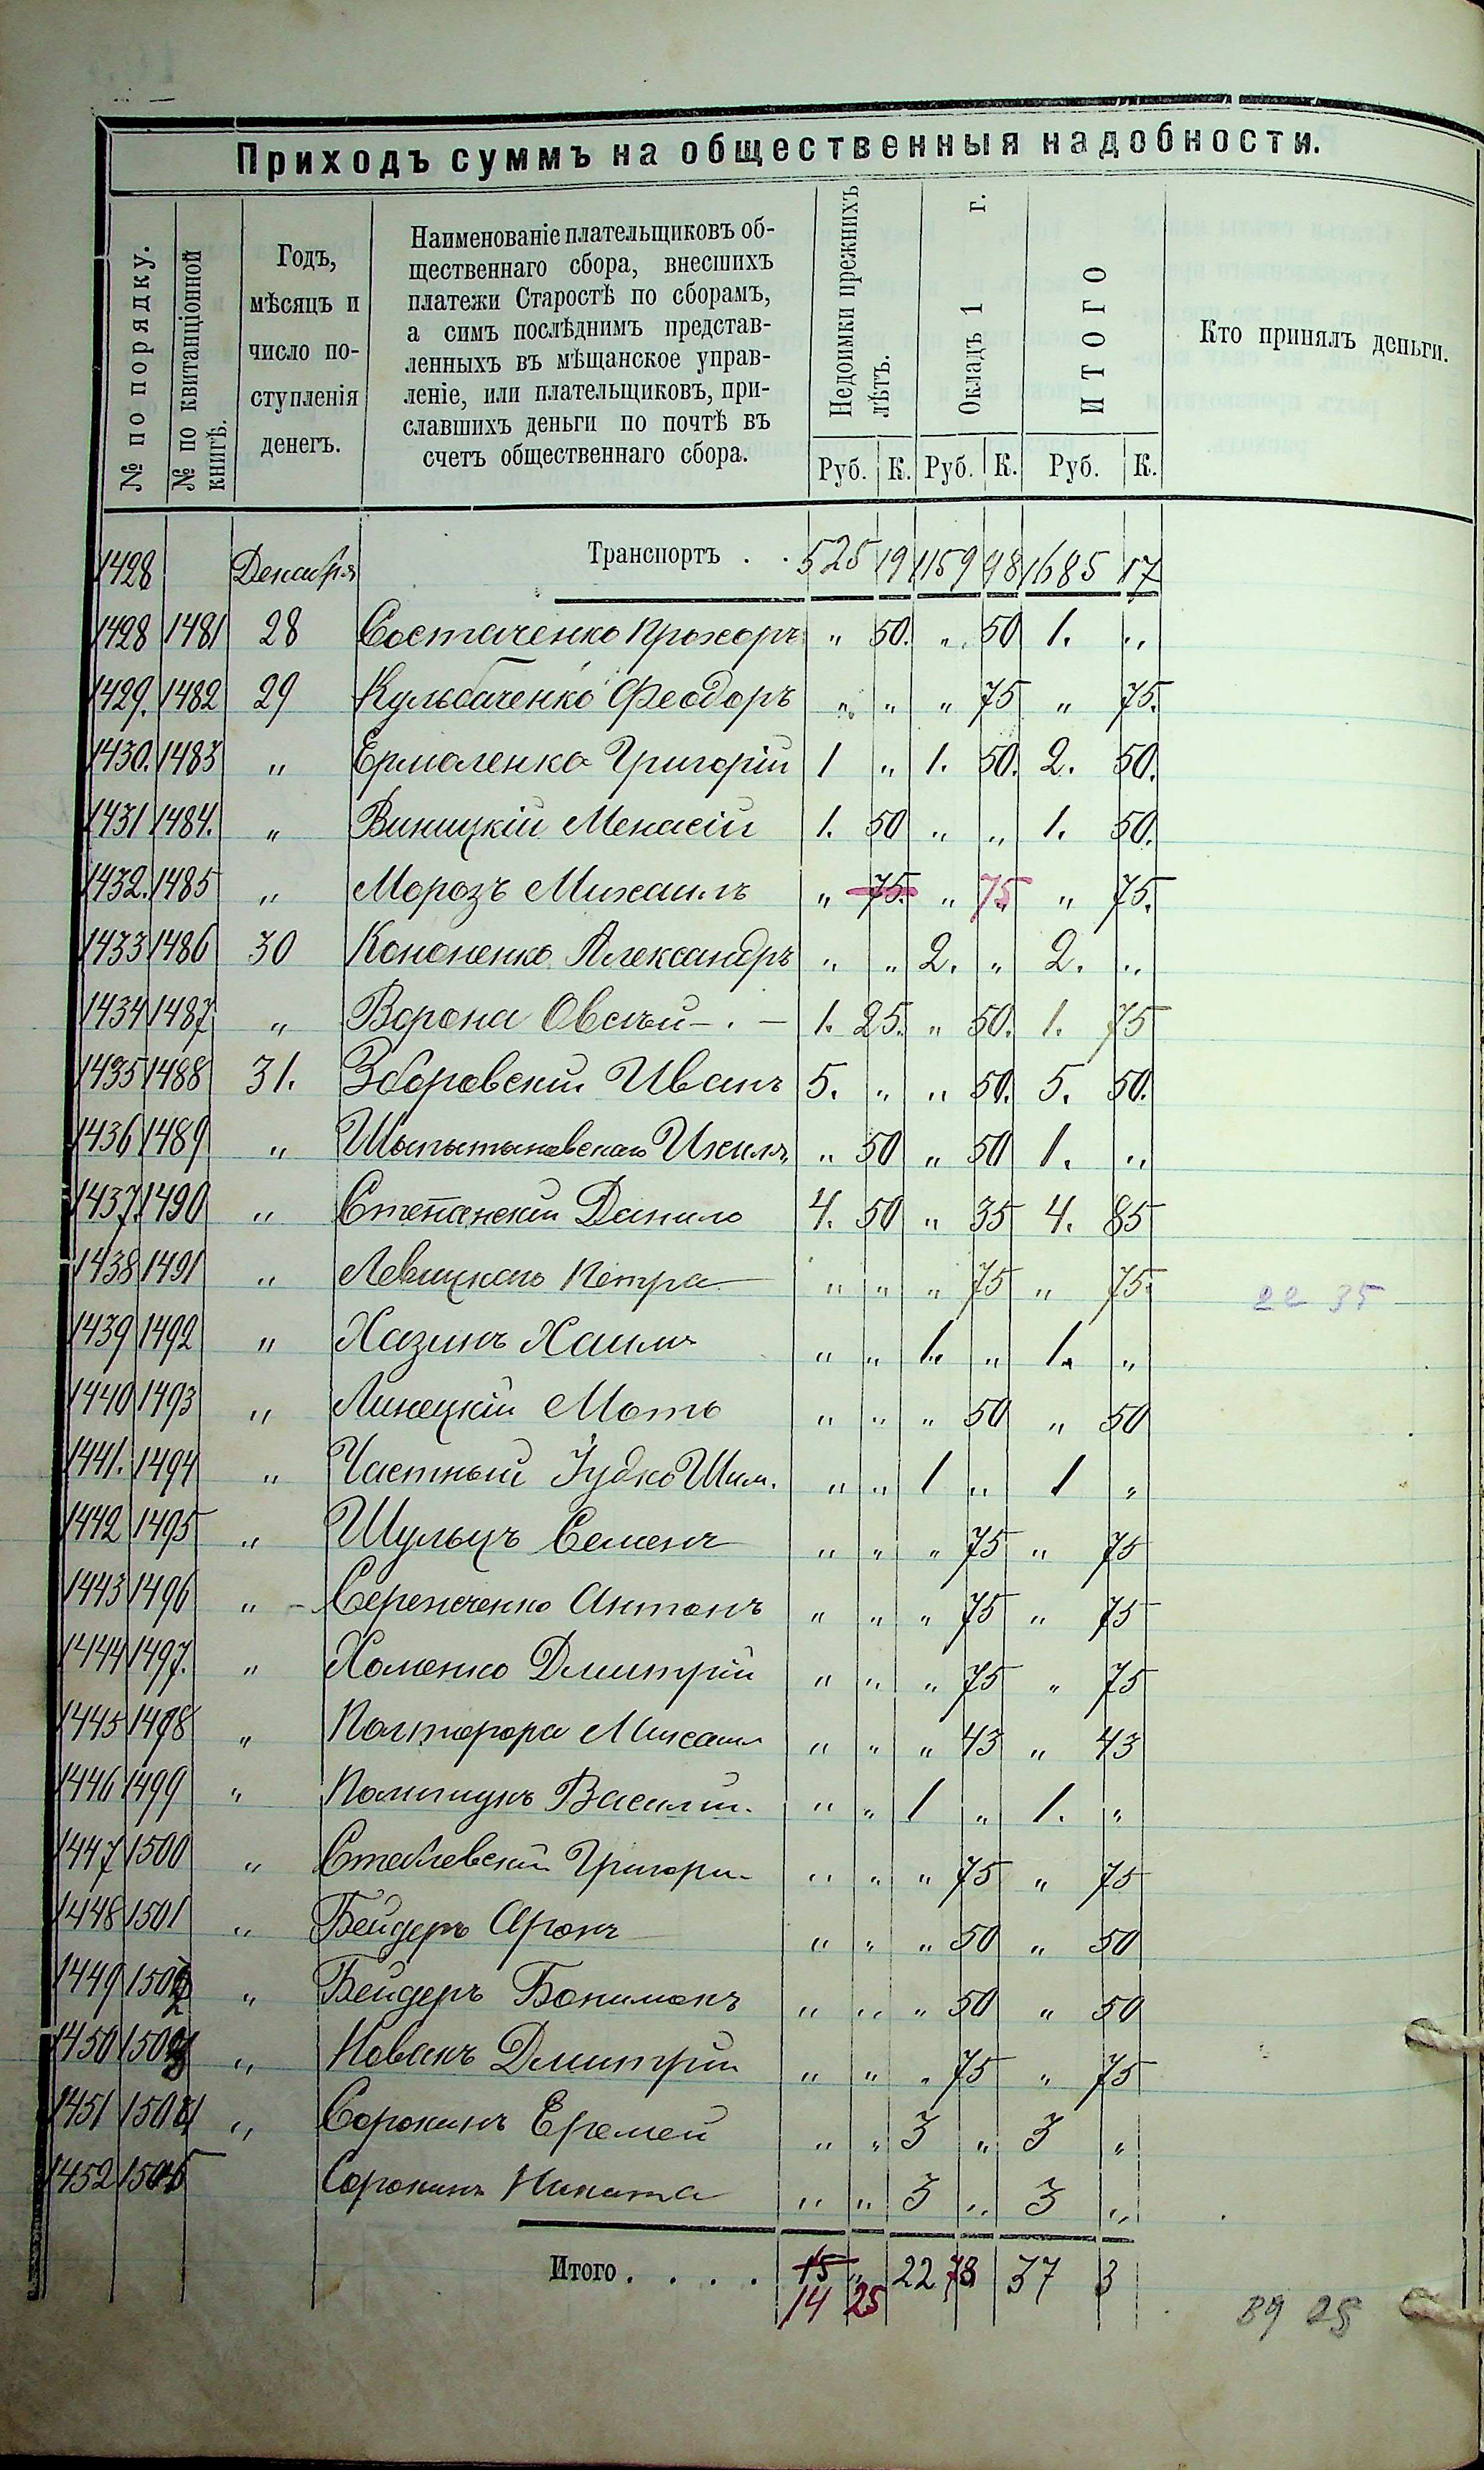 Приходъ суммъ на общественныя надобности.
№ по порядку.
№ по квитанціонной
книгѣ.
Годъ,
мѣсяцъ и
число по-
ступленія
денегъ.
Наименованіе плательщиковъ об-
щественнаго сбора, внесшихъ
платежи Старостѣ по сборамъ,
а симъ послѣднимъ представ-
ленныхъ въ мѣщанское управ-
леніе, или плательщиковъ, при-
славшихъ деньги по почтѣ въ
счетъ общественнаго сбора.
Недоимки прежнихъ
лѣтъ.
Окладъ 1 г.
ИТОГО
Кто принялъ деньги.
Руб. К. Руб. К. Руб. К.
1428 Декабря Транспортъ . . 525 19 1159 98 1685 17
1428 1481 28 Состаченко Прохоръ „ 50. „ 50 1. „
1429. 1482 29 Кульбаченко Феодоръ „ „ „ 75 „ 75.
1430. 1483 „ Ермоленко Григорій 1 „ 1. 50. 2. 50.
1431 1484. „ Виницкій Менасій 1. 50 „ „ 1. 50.
1432. 1485 „ Морозъ Михаилъ „ 75. „ 75 „ 75.
1433 1486 30 Кононенко Александръ „ „ 2. „ 2. „
1434 1487 „ Ворона Овсѣй - . - 1. 25. „ 50. 1. 75
1435 1488 31. Зборовскій Иванъ 5. „ „ 50. 5. 50.
1436 1489 „ „ 50 „ 50 1. „
1437. 1490 „ Степанскій Данило 4. 50 „ 35 4. 85
1438 1491 „ Левицкаго Петра „ „ „ 75 „ 75.
22 35
1439 1492 „ Хазинъ Хаимъ „ „ 1. „ 1. „
1440 1493 „ Линецкій Моть „ „ „ 50 „ 50
1441. 1494 „ Частный Іудко Шим. „ „ 1 „ 1 „
1442 1495 „ Шульцъ Семенъ „ „ „ 75 „ 75
1443 1496 „ - Сереженко Антонъ „ „ „ 75 „ 75
1444 1497. „ Хоменко Дмитрій „ „ „ 75 „ 75
1445 1498 „ Михаил „ „ „ 43 „ 43
1446 1499 „ Полищукъ Василій. „ „ 1 „ 1. „
1447 1500 „ Ставлевскій Григори „ „ „ 75 „ 75
1448 1501 „ Бейдеръ Аронъ „ „ „ 50 „ 50
1449 1502 „ Бейдеръ „ „ „ 50 „ 50
1450 1503 „ Новакъ Дмитрій „ „ „ 75 „ 75
1451 1504 „ Сорокинъ Еремей „ „ 3 „ 3 „
1452 1505 Сорокинъ Никита „ „ 3 „ 3 „
Итого . . . . 15 „ 22 78 37 3
14 25
89 25